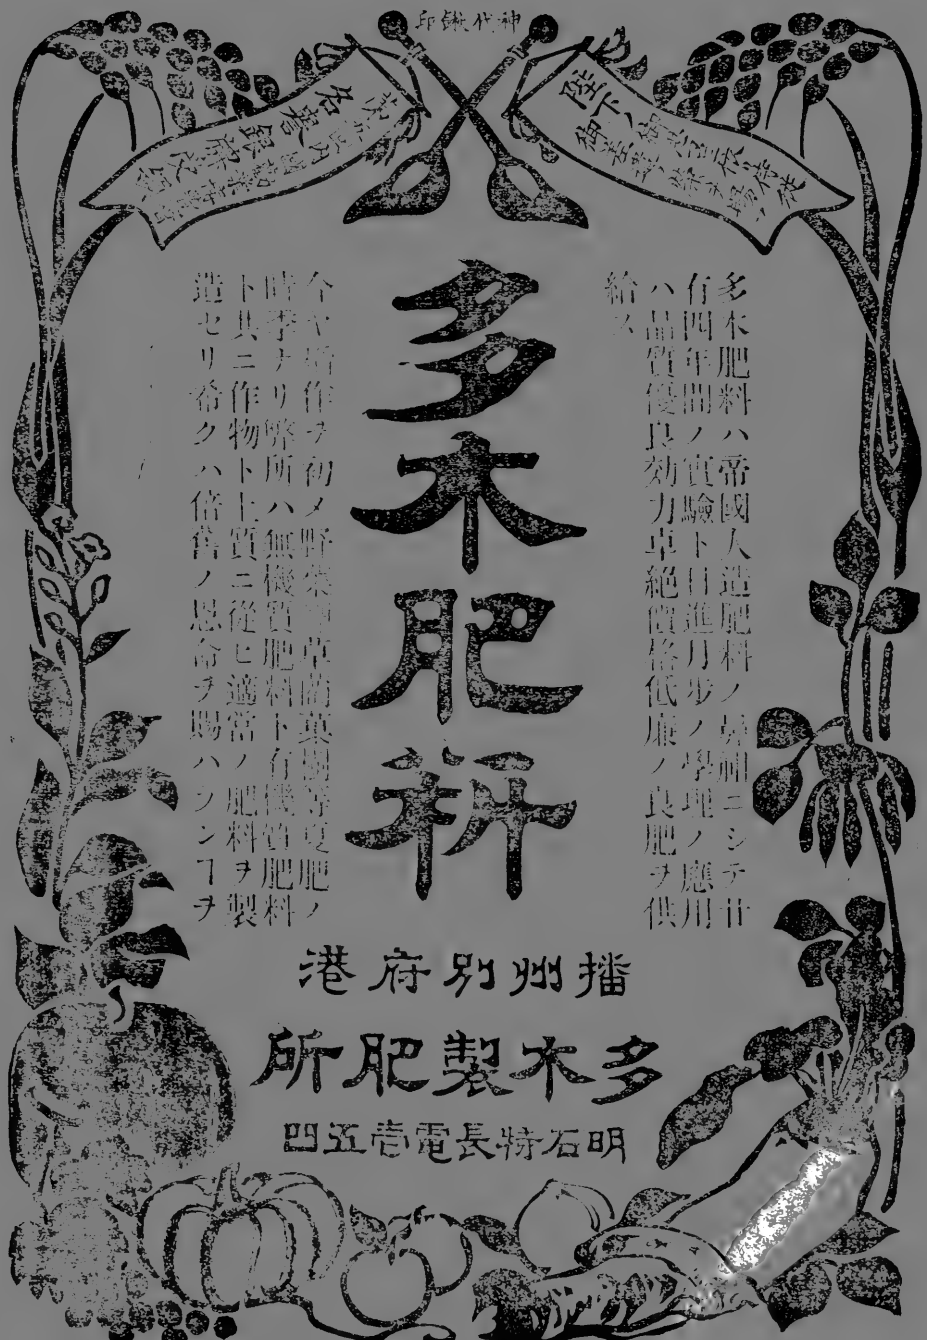 印鍬代神
多木肥料ハ帝國人造肥料ノ鼻祖ニシテ廿
有四年間ノ實驗ト日進月歩ノ學理ノ應用
ハ品質優良効力卓絶價格低廉ノ良肥ヲ供
給ス
多木肥料
今ヤ稻作ヲ初メ野菜 草 菓 等夏肥ノ
時季ナリ弊所ハ無機質肥料ト有機質肥料
ト共ニ作物ト土質ニ從ヒ適當ノ肥料ヲ製
造セリ希クハ倍舊ノ恩命ヲ賜ハランヿヲ
港府別州播
所肥製木多
四五壱電長特石明